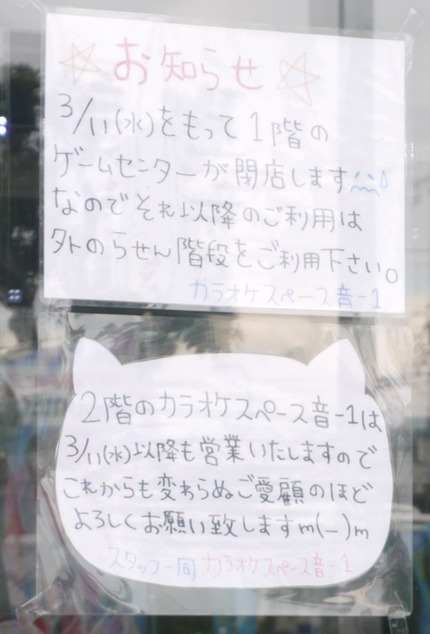 ☆お知らせ☆
3/11(水)をもって1階の
ゲームセンターが閉店します
なのでそれ以降のご利用は
外のらせん階段をご利用下さい。
カラオケスペース音-1
2階のカラオケスペース音-1は
3/11(水)以降も営業いたしますので
これからも変わらぬご愛顧のほど
よろしくお願い致しますm(_)m
スタッフ一同 カラオケスペース音-1